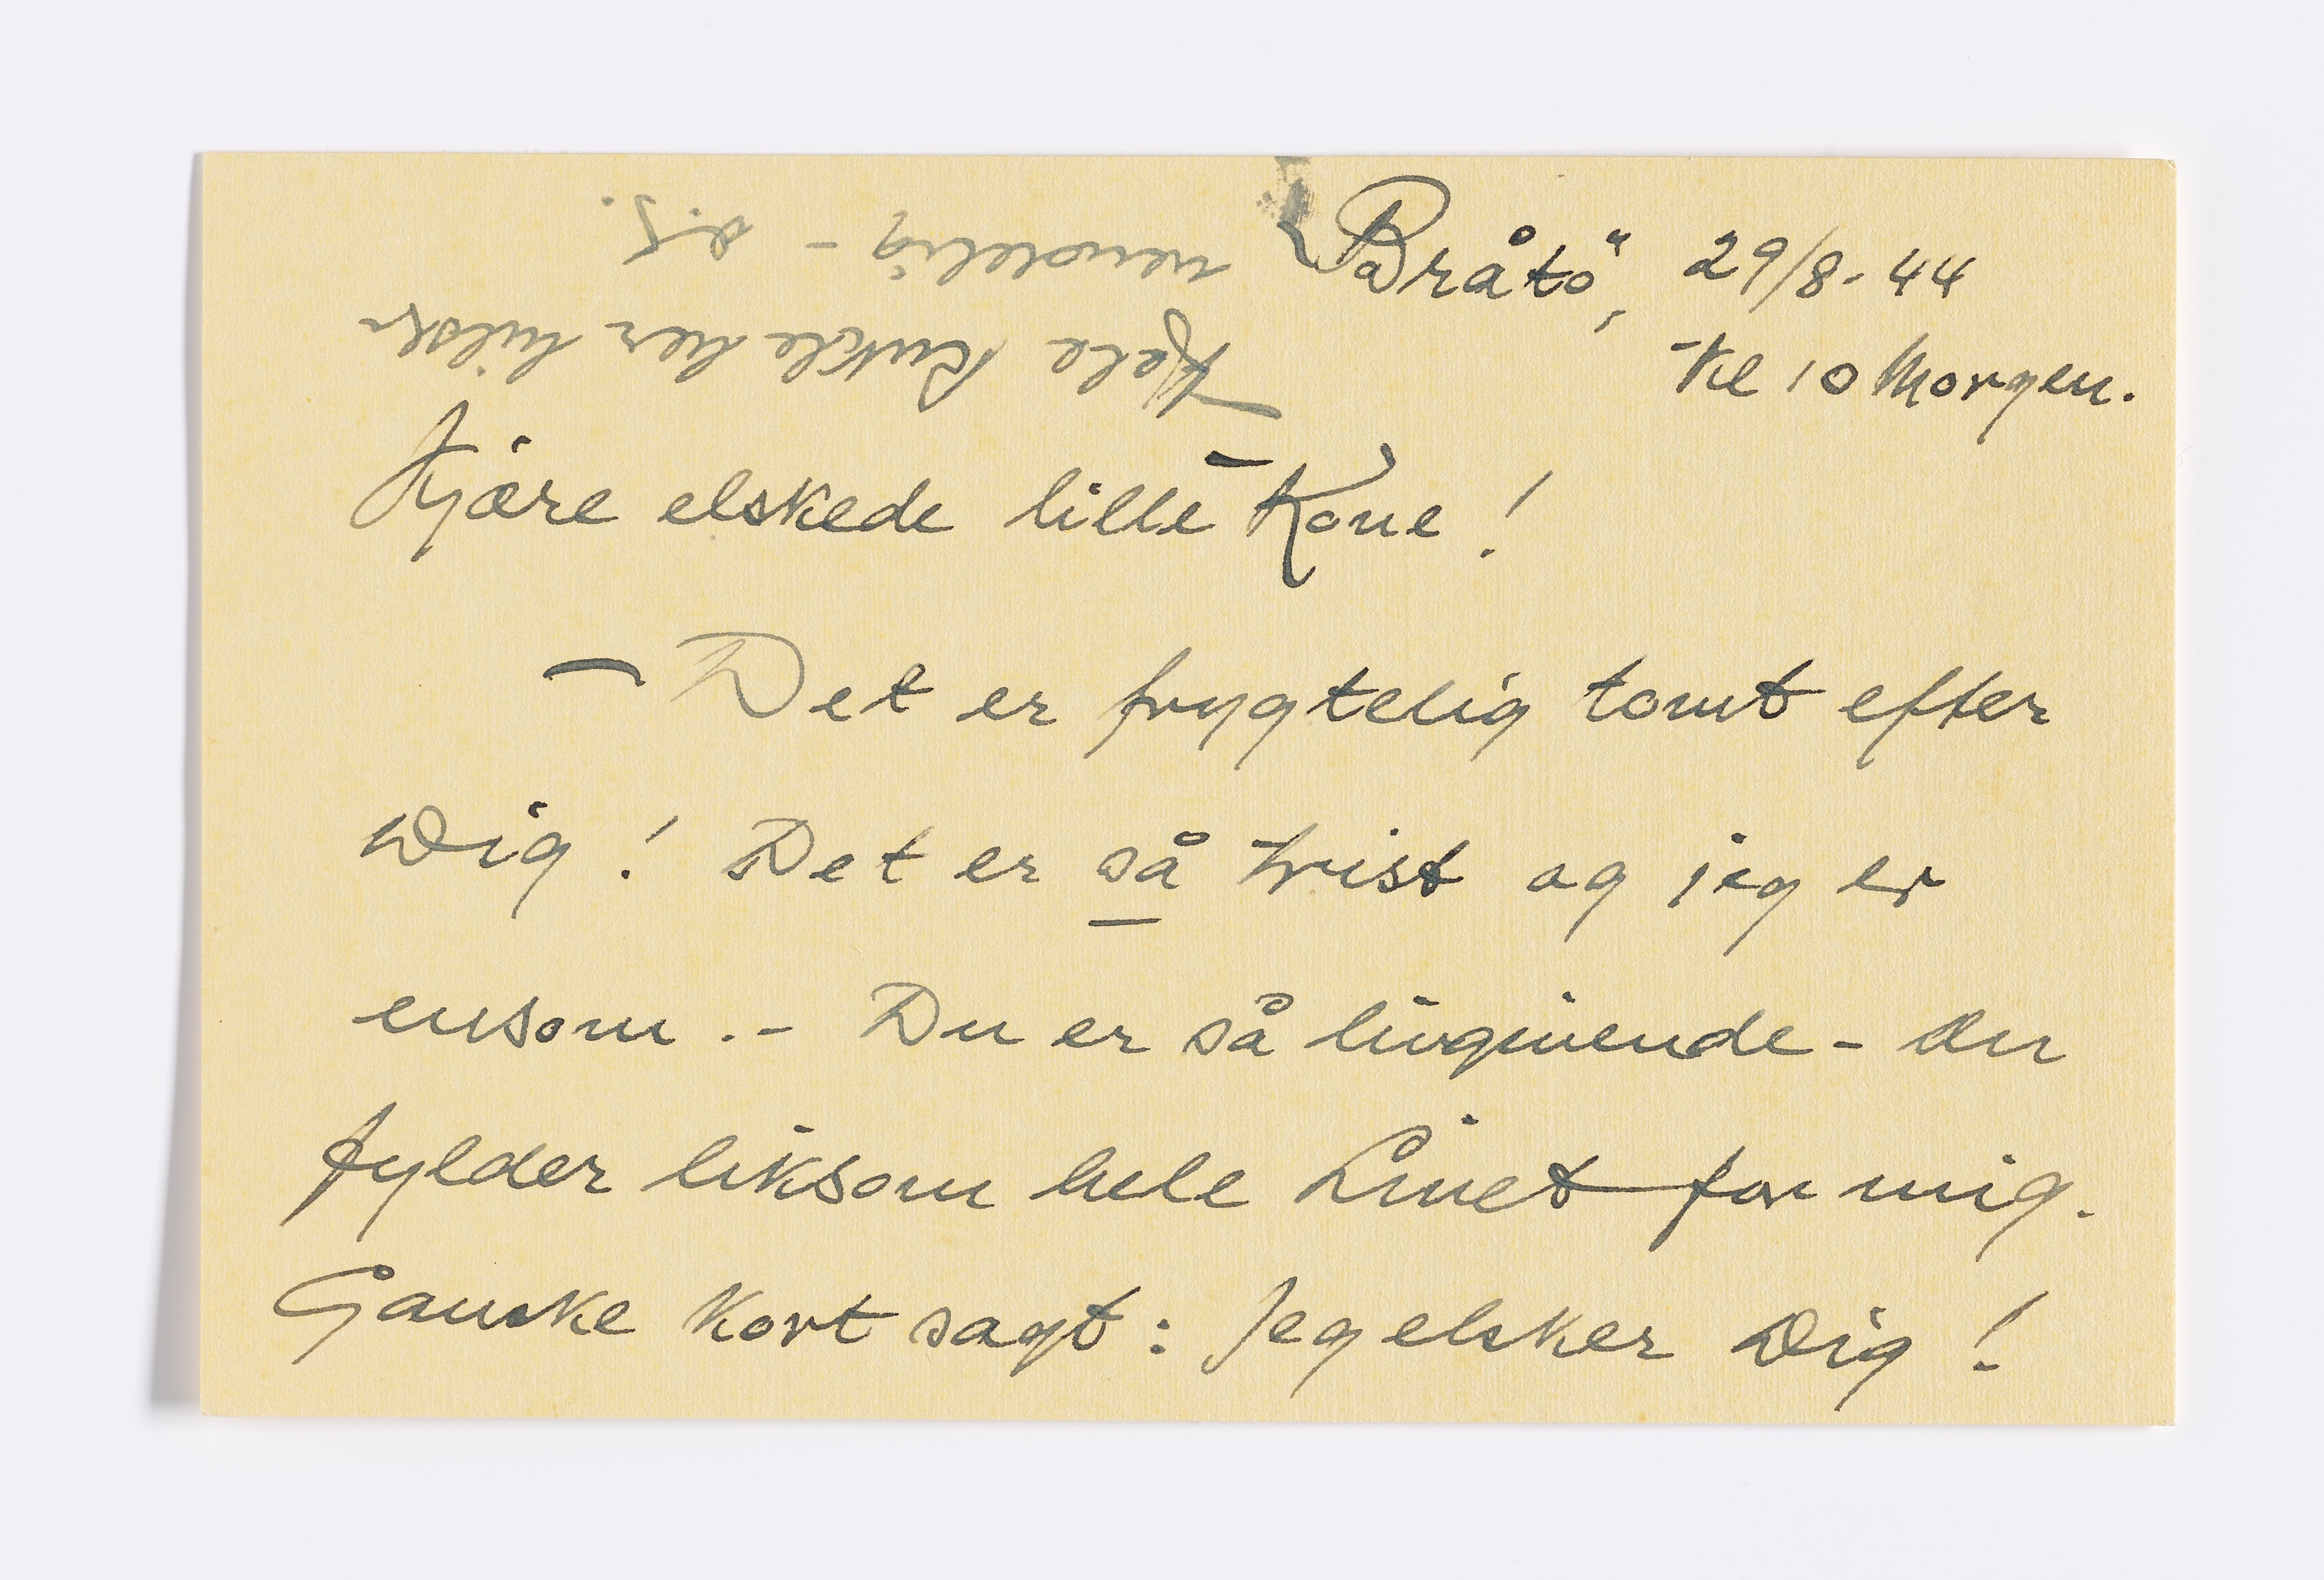 Bråtö, 29/8-44
Kl 10 Morgen.
Kjære elskede lille Kone!
- Det er frygtelig tomt efter
Dig! Det er så trist og jeg er
ensom.- Du er så livgivende - du
fylder liksom hele Livet for mig.
Ganske kort sagt: Jeg elsker Dig!
Hele Kukle her hilser
uendelig - d.s.